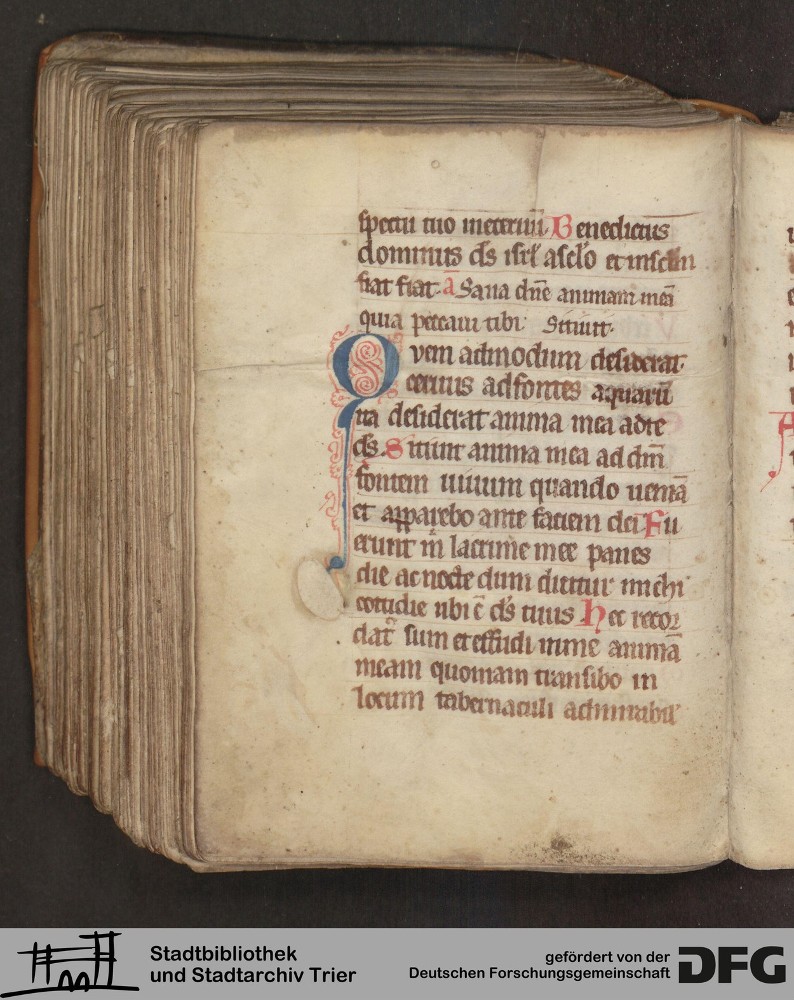 spectu tuo ineternū Benedictus
dominus ds isrl' asclo et insclm
fiat fiat A Sana dn̄e animam meā
quia peccaui tibi Sitiuit
Quem admodum desiderat
ceruus adfontes aquarū
ita desiderat anima mea adte
ds Sitiuit anima mea ad dm̄
fontem uiuum quando ueniā
et apparebo ante faciem dei Fu
erunt m̄ lacrime mee panes
die ac nocte dum dicitur michi
cotidie ubi ē ds tuus Hec recor
dat' sum et effudi inme animā
meam quoniam transibo in
locum tabernaculi admirabil'
Stadtbibliothek
und Stadtarchiv Trier
gefördert von der
Deutschen Forschungsgemeinschaft
DFG